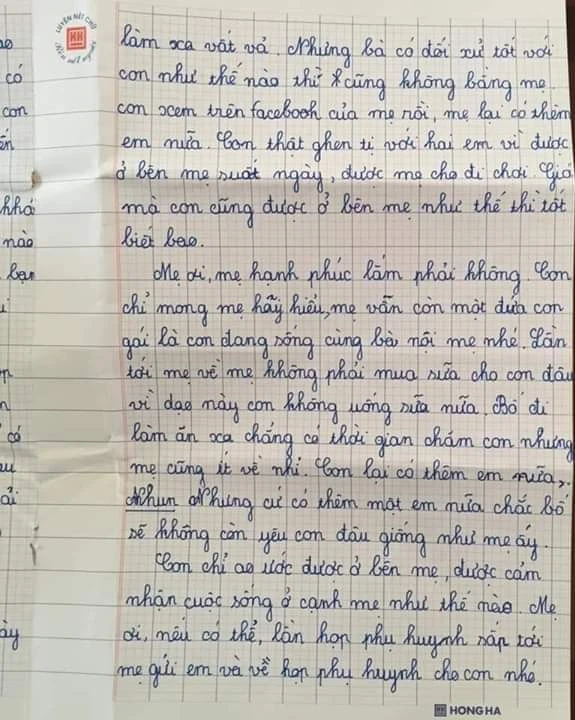 ao
có
con
ến
khá
nào
bạn
n
có
ải
ày
LUYỆN NÉT CHỮ
làm xa vất vả. Nhưng bà có đối xử tốt với
con như thế nào thì cũng không bằng mẹ.
con xem trên facebook của mẹ rồi, mẹ lại có thêm
em nữa. Con thật ghen tị với hai em vì được
ở bên mẹ suốt ngày, được mẹ cho đi chơi. Giá
mà con cũng được ở bên mẹ như thế thì tốt
biết bao.
Mẹ ơi, mẹ hạnh phúc lắm phải không. Con
chỉ mong mẹ hãy hiểu, mẹ vẫn còn một đứa con
gái là con đang sống cùng bà nội mẹ nhé. Lần
tới mẹ về mẹ không phải mua sữa cho con đâu
vì dạo này con không uống sữa nữa. Bố đi
làm ăn xa chẳng có thời gian chăm con nhưng
mẹ cũng ít về nhỉ. Con lại có thêm em nữa,.
Nhun Nhưng cứ có thêm một em nữa chắc bố
sẽ không còn yêu con đâu giống như mẹ ấy.
Con chỉ ao ước được ở bên mẹ, được cảm
nhận cuộc sống ở cạnh mẹ như thế nào. Mẹ
ơi, nếu có thể, lần họp phụ huynh sắp tới
mẹ gửi em và về họp phụ huynh cho con nhé.
HONG HA